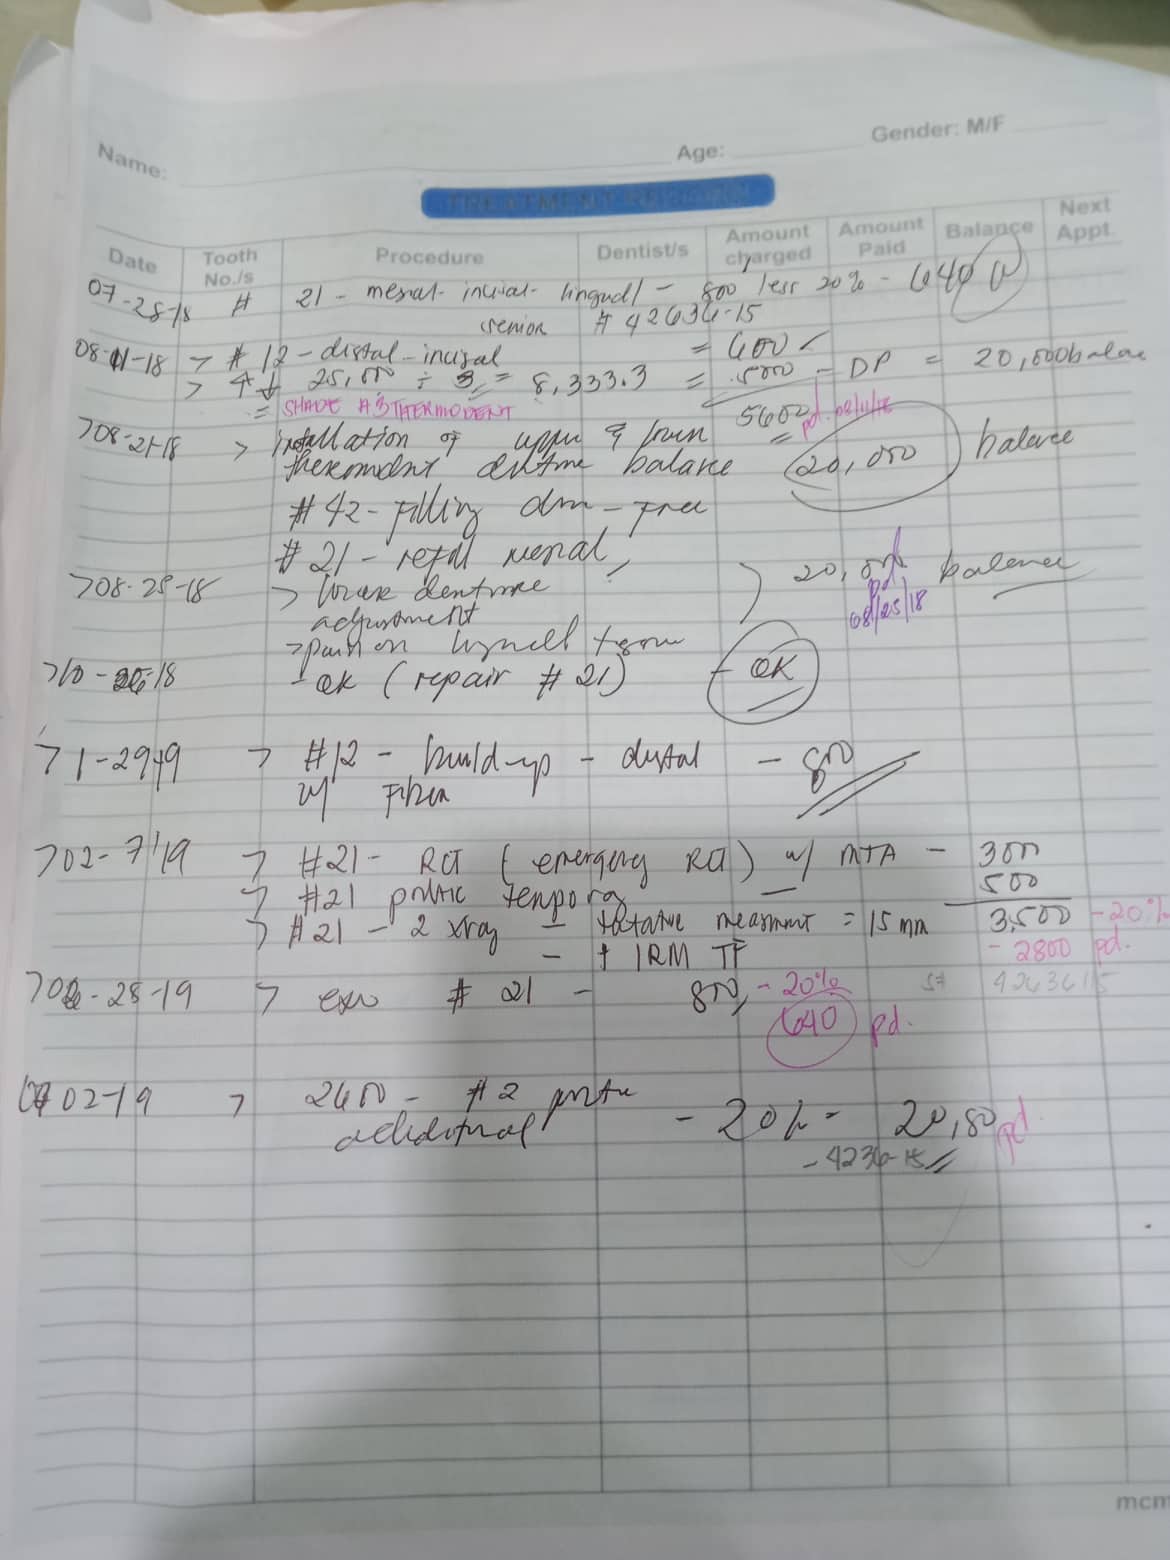 Name: Age: Gender: M/F
TREATMENT RECORD
Date Tooth No./s Procedure Dentist/s Amount charged Amount Paid Balance Next Appt.
07-28-18 # 21 - mesial-incisal-lingual - 800 less 20% - 640
senior # 42636-15
08-11-18 > # 12 - distal-incisal = 600
> 25,000 ÷ 3 = 8,333.3 = 5000 - DP = 20,000 balance
= SHADE A3 THERMODENT 5600 pd. 08/11/18
>08-21-18 > installation of upper & lower
thermodent denture balance 20,000 balance
#42 - Filling - Free
#21 - refill mesial
>08-25-18 > lower denture 20,000 balance
adjustment pd. 08/25/18
>10-26-18 - ok (repair #21) - OK
>1-29-19 > #12 - build-up - distal - 800
w/ Fiber
>02-7-19 > #21 - RCT (emergency RCT) w/ MTA - 3000
> #21 temporary 500
> #21 - 2 xray - tentative measurement = 15 mm 3,500 - 20%
- + IRM TF - 2800 pd.
-28-19 > exo # 21 - 800, - 20% 4263615
640 pd.
02-19 > 2600 - # 2
additional - 20% - 20,80 pd.
- 4236-15
mcm